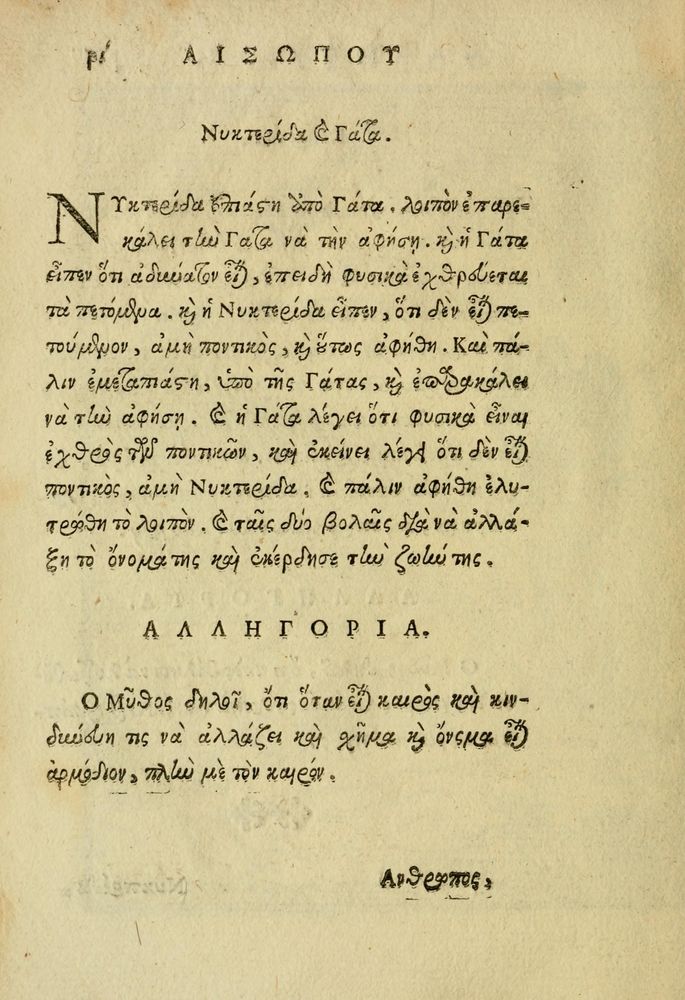 ρι΄ ΑΙΣΩΠΟΥ
Νυκτερίδα καὶ Γάτα.
ΝΥκτερίδα ἐπιάστη ὑπὸ Γάτα. λοιπὸν ἐπαρε-
κάλει τὴν Γατα νὰ τὴν ἀφήσῃ. καὶ ἡ Γάτα
εἶπεν ὅτι ἀδιώατον εἶναι, ἐπειδὴ φυσικὰ ἐχθρεύεται
τὰ πετόμενα. καὶ ἡ Νυκτερίδα εἶπεν, ὅτι δὲν εἶναι πε-
τούμενον, ἀμὴ ποντικὸς, καὶ οὕτως ἀφήθη. Και πά-
λιν ἐμεταπιάστη, ὑπὸ τῆς Γάτας, καὶ ἐπαρακάλει
νὰ τὴν ἀφήσῃ. καὶ ἡ Γάτα λέγει ὅτι φυσικὰ εἶναι
ἐχθρὸς τῶν ποντικῶν, καὶ ἐκείνει λέγει ὅτι δὲν εἶναι
ποντικὸς, ἀμὴ Νυκτερίδα. καὶ πάλιν ἀφήθη ἐλυ-
τρώθη τὸ λοιπὸν. καὶ ταῖς δύο βολαῖς διὰ νὰ ἀλλά-
ξῃ τὸ ὄνομά της καὶ ἐκέρδησε τὴν ζωήν της.
ΑΛΛΗΓΟΡΙΑ.
Ο Μῦθος δηλοῖ, ὅτι ὅταν εἶναι καιρὸς καὶ κιν-
διωύῃ τις νὰ ἀλλάζει καὶ σχῆμα καὶ ὄνομα εἶναι
ἁρμόδιον, πλὴν μὲ τὸν καιρόν.
Ανθρωπος,